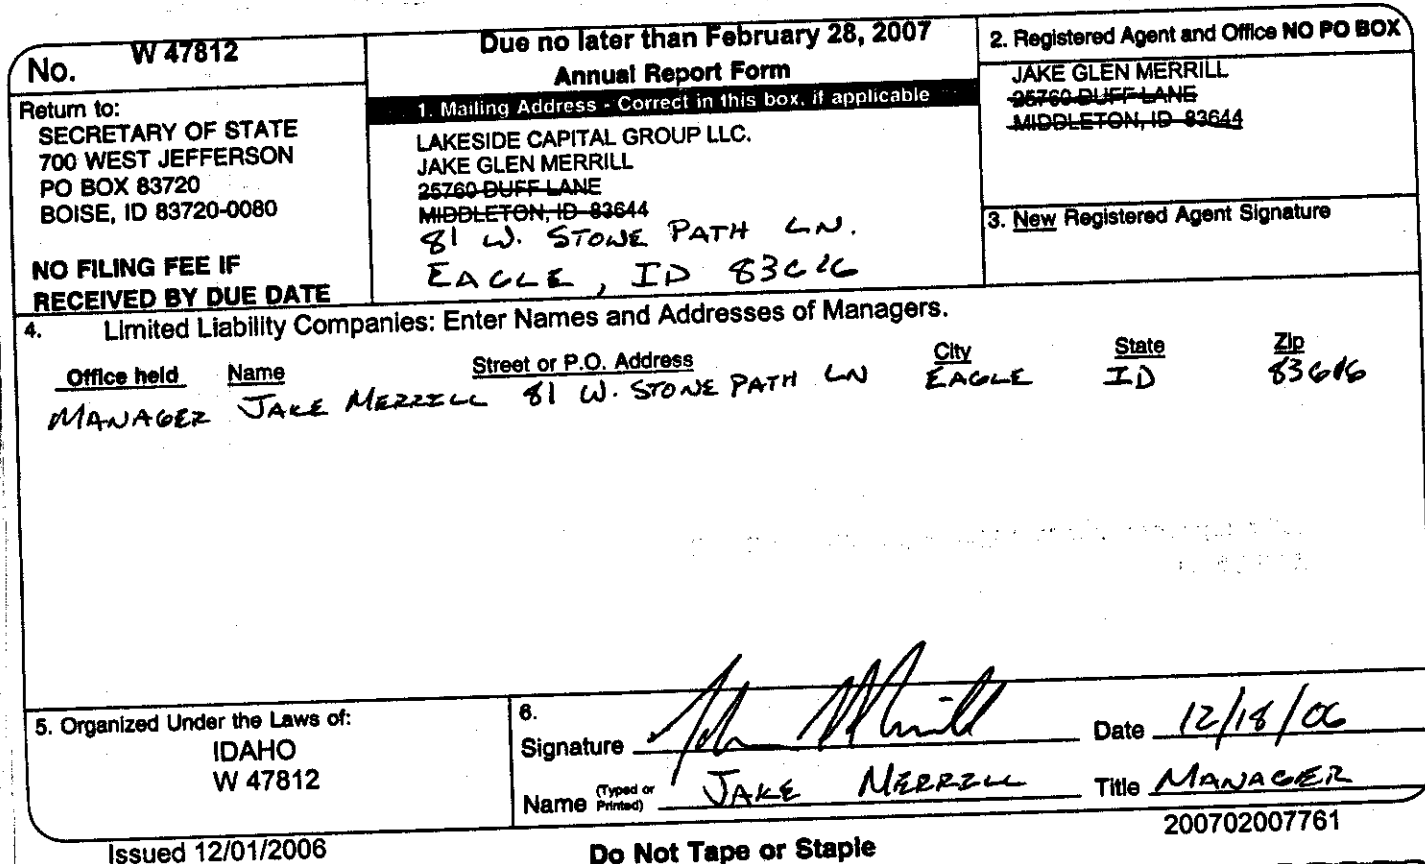 No. W 47812
Return to:
SECRETARY OF STATE
700 WEST JEFFERSON
PO BOX 83720
BOISE, ID 83720-0080
NO FILING FEE IF
RECEIVED BY DUE DATE
Due no later than February 28, 2007
Annual Report Form
1. Mailing Address - Correct in this box, if applicable
LAKESIDE CAPITAL GROUP LLC.
JAKE GLEN MERRILL
25760 DUFF LANE
MIDDLETON, ID 83644
81 W. STONE PATH LN.
EAGLE, ID 83616
2. Registered Agent and Office NO PO BOX
JAKE GLEN MERRILL
25760 DUFF LANE
MIDDLETON, ID 83644
3. New Registered Agent Signature
4. Limited Liability Companies: Enter Names and Addresses of Managers.
Office held Name Street or P.O. Address City State Zip
MANAGER JAKE MERRILL 81 W. STONE PATH LN EAGLE ID 83616
5. Organized Under the Laws of:
IDAHO
W 47812
6.
Signature Date 12/18/06
Name (Typed or Printed) JAKE MERRILL Title MANAGER
Issued 12/01/2006
Do Not Tape or Staple
200702007761